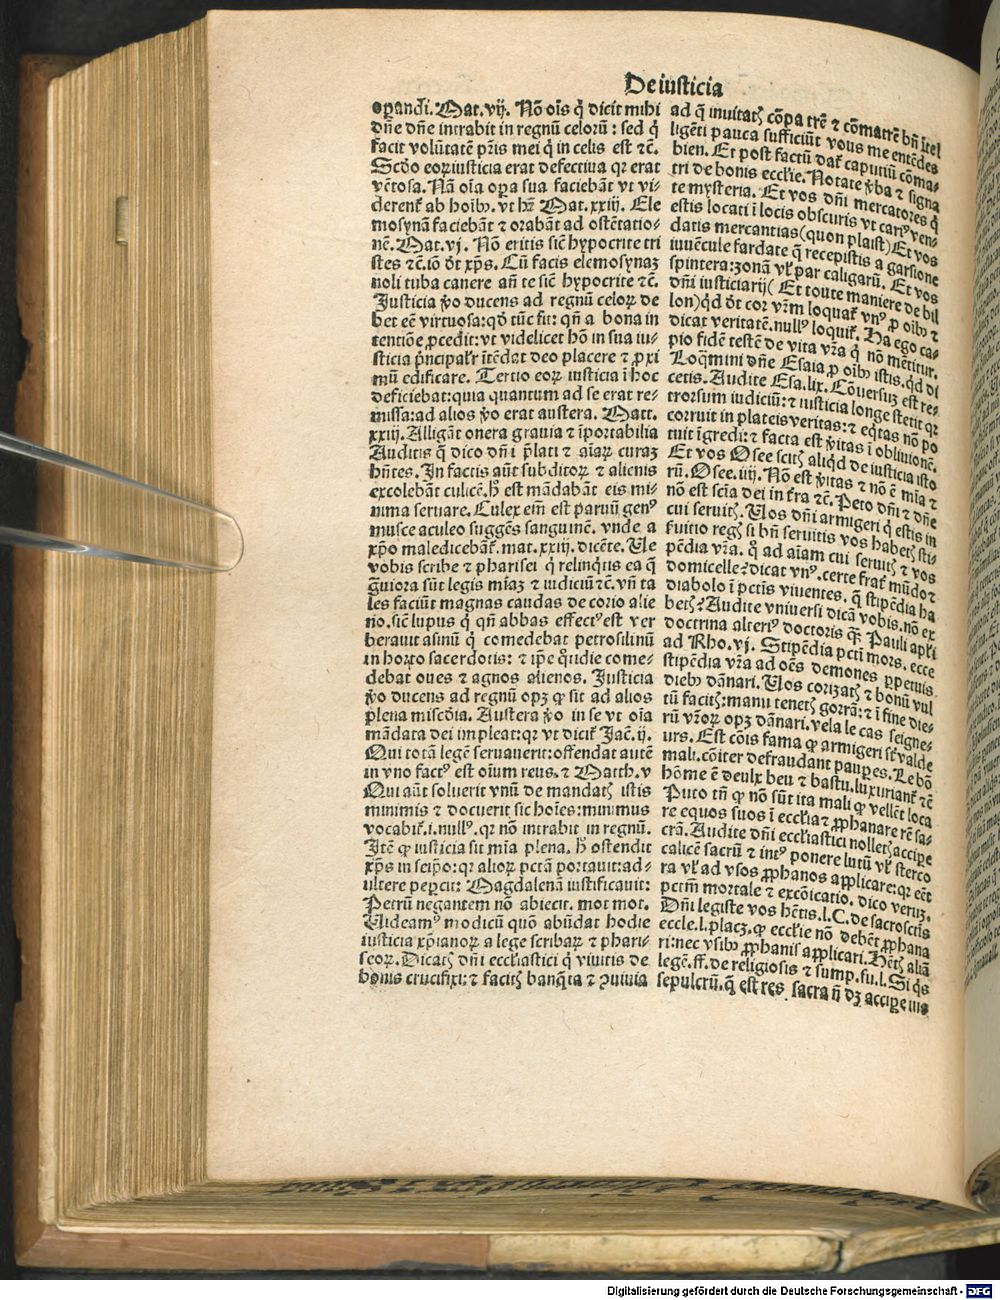 De iusticia
operandi. Mat. vij. Nō oīs q̄ dicit mihi
dn̄e dn̄e intrabit in regnū celorū : sed q̄
facit volūtatē pr̄is mei q̄ in celis est ⁊c̄.
Scd̄o eoꝝ iusticia erat defectiua qꝛ erat
vētosa. Nā oīa oꝑa sua faciebāt vt vi-
derent̄ ab hoībꝰ. vt hr̄ Mat. xxiij. Ele
mosynā faciebāt ⁊ orabāt ad ostētatio-
nē. Mat. vj. Nō eritis sic̄ hypocrite tri
stes ⁊c̄. iō dt̄ xp̄s. Cū facis elemosynaꝫ
noli tuba canere an̄ te sic̄ hypocrite ⁊c̄.
Justicia v̄o ducens ad regnū celoꝝ de
bet eē virtuosa: qd̄ tūc fit: qn̄ a bona in
tentiōe ꝓcedit: vt videlicet hō in sua iu-
sticia pn̄cipalr̄ ītēdat deo placere ⁊ ꝓxi
mū edificare. Tertio eoꝝ iusticia ī hoc
deficiebat: quia quantum ad se erat re-
missa: ad alios v̄o erat austera. Matt.
xxiij. Alligāt onera grauia ⁊ īportabilia
Auditis q̄ dico dn̄i p̄lati ⁊ aīaꝝ curaꝫ
hn̄tes. In factis aūt subditoꝝ ⁊ alienis
excolebāt culicē. h̄ est mādabāt eis mi-
nima seruare. Culex eīm est paruū genꝰ
musce aculeo suggēs sanguinē. vnde a
xp̄o maledicebāt̄. mat. xxiij. dicēte. Ue
vobis scribe ⁊ pharisei q̄ relinq̄tis ea q̄
ḡuiora sūt legis mīaꝫ ⁊ iudiciū ⁊c̄. vn̄ ta
les faciūt magnas caudas de corio alie
no. sic̄ lupus q̄ qn̄ abbas effectꝰ est ver
berauit asinū q̄ comedebat petrosilinū
in horto sacerdotis: ⁊ ip̄e q̄tidie come-
debat oues ⁊ agnos alienos. Justicia
v̄o ducens ad regnū opꝫ ꝙ sit ad alios
plena miscd̄ia. Austera v̄o in se vt oīa
mādata dei impleat: qꝛ vt dicit̄ Jac̄. ij.
Qui totā legē seruauerit: offendat autē
in vno factꝰ est oīum reus. ⁊ Matth. v
Qui aūt soluerit vnū de mandatꝭ istis
minimis ⁊ docuerit sic hoīes: minimus
vocabit̄. i. nullꝰ. qꝛ nō intrabit in regnū.
Itē ꝙ iusticia sit mīa plena. h̄ ostendit
xp̄s in seip̄o: qꝛ alioꝝ pctā portauit: ad-
ultere peꝑcit: Magdalenā iustificauit:
Petrū negantem nō abiecit. mot mot.
Uideamꝰ modicū quō abūdat hodie
iusticia xp̄ianoꝝ a lege scribaꝝ ⁊ phari-
seoꝝ. Dicatꝭ dn̄i eccl̄iastici q̄ viuitis de
bonis crucifixi: ⁊ facitꝭ banq̄ta ⁊ ꝯuiuia
ad q̄ inuitatꝭ cōpatrē ⁊ cōmatrē bn̄
ligēti pauca sufficiūt vous me entēdes
bien. Et post factū dat̄ caputiū cōma-
tri de bonis eccl̄ie. Notate v̄ba ⁊ signa
te mysteria. Et vos dn̄i mercatores q̄
estis locati ī locis obscuris vt cariꝰ ven-
datis mercantias (quon plaist) Et vos
iuuēcule fardate q̄ recepistis a garsione
spintera: zonā vl̄ par caligarū. Et vos
dn̄i iusticiarij ( Et toute maniere de bil
lon) qd̄ dt̄ cor vr̄m loquat̄ vnꝰ ꝓ oībꝰ ⁊
dicat veritatē. nullꝰ loquit̄. Ha ego ca-
pio fidē testē de vita vr̄a q̄ nō mētitur.
Loq̄mini dn̄e Esaia ꝓ oībꝰ istis. qd̄ di
cetis. Audite Esa. lix. Cōuersuꝫ est re-
trorsum iudiciū: ⁊ iusticia longe stetit qꝛ
corruit in plateis veritas: ⁊ eq̄tas nō po
tuit īgredi: ⁊ facta est v̄itas ī obliuionē.
Et vos Osee scitꝭ aliqd̄ de iusticia isto
rū. Osee. iiij. Nō est v̄itas ⁊ nō ē mīa ⁊
nō est scīa dei in tr̄a ⁊c̄. Peto dn̄i ⁊ dn̄e
cui seruitꝭ. Uos dn̄i armigeri q̄ estis in
ẜuitio regꝭ si bn̄ seruitis vos habetꝭ sti-
pēdia vr̄a. q̄ ad aīam cui seruitꝭ ⁊ vos
domicelle? dicat vnꝰ. certe frat̄ mūdo ⁊
diabolo ī pctīs viuentes. q̄ stipēdia ha
betꝭ? Audite vniuersi dicā vobis. nō ex
doctrina alteriꝰ doctoris q̄ꝫ Pauli apl̄i
ad Rho. vj. Stipēdia pctī mors. ecce
stipēdia vr̄a ad oēs demones ꝑpetuis
diebꝰ dānari. Uos corizatꝭ ⁊ bonū vul
tū facitꝭ: manu tenetꝭ gorrā: ⁊ ī fine die-
rū vr̄oꝝ opꝫ dānari. vela le cas seigne-
urs. Est cōis fama ꝙ armigeri st̄ valde
mali. cōiter defraudant pauꝑes. Le bō
hōme ē deulx beu ⁊ bastu. luxuriant̄ ⁊c̄
Puto tn̄ ꝙ nō sūt ita mali ꝙ vellēt loca
re equos suos ī eccl̄ia ⁊ ꝓphanare rē sa-
crā. Audite dn̄i eccl̄iastici nolletꝭ accipe
calicē sacrū ⁊ intꝰ ponere lutū vl̄ sterco
ra vl̄ ad vsos ꝓphanos applicare: qꝛ eēt
pctm̄ mortale ⁊ excōicatio. dico veruꝫ.
Dn̄i legiste vos hētis. l. C. de sacrosctīs
eccle. l. placꝫ. ꝙ eccl̄ie nō debēt ꝓphana
ri: nec vsibꝰ ꝓphanis applicari. Hētꝭ aliā
legē. ff. de religiosis ⁊ sump. fu. l. Si q̄s
sepulcrū. q̄ est res sacra n̄ dꝫ accipe ius
Digitalisierung gefördert durch die Deutsche Forschungsgemeinschaft - DFG